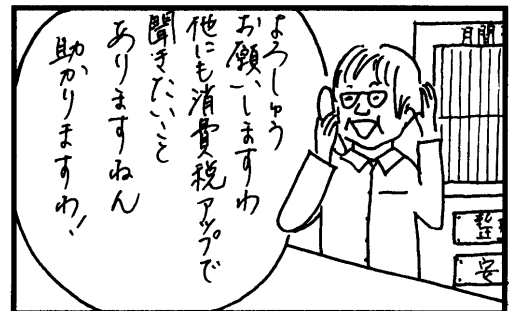 よろしゅう
お願いしますわ
他にも消費税アップで
聞きたいこと
ありますねん
助かりますわ!
月間
整
安